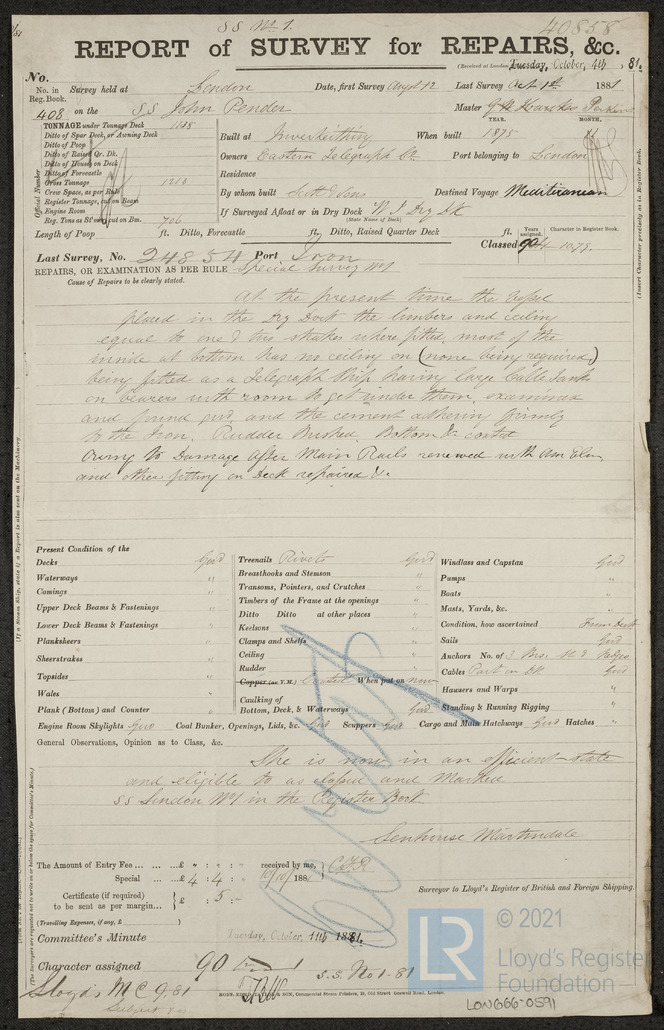 SS No 1.
40858
REPORT of SURVEY for REPAIRS, &c.
(Received at London Tuesday, October, 4th, 81.
No.
No. in Reg. Book. Survey held at London Date, first Survey Augt 12 Last Survey Oct 1st 1881
408 on the SS John Pender Master
TONNAGE under Tonnage Deck
Ditto of Spar Deck, or Awning Deck
Ditto of Poop
Ditto of Raised Qr. Dk.
Ditto of House on Deck
Ditto of Forecastle
Gross Tonnage 1213
Crew Space, as per Rule
Register Tonnage, cut on Beam
Engine Room
Reg. Tons as SC cut on Bm. 706
Official Number
YEAR. MONTH.
Built at Inverkeithing When built 1875
Owners Eastern Telegraph Co Port belonging to London
Residence
By whom built Destined Voyage Mediterranean
If Surveyed Afloat or in Dry Dock W I Dry Dk
(State Name of Dock)
Length of Poop ft. Ditto, Forecastle ft. Ditto, Raised Quarter Deck ft.
Years assigned. Character in Register Book.
Classed 90
(Insert Character precisely as in Register Book.
Last Survey, No. 24854 Port Iron
REPAIRS, OR EXAMINATION AS PER RULE Special Survey No 1
Cause of Repairs to be clearly stated.
At the present time the Vessel
placed in the Dry Dock the limbers and ceiling
equal to one & two strakes where fitted, most of the
inside at bottom has no ceiling on (none being required)
being fitted as a Telegraph Ship having large Cable Tanks
on bearers with room to get under them, examined
and found good, and the cement adhering firmly
to the Iron. Rudder Bushed. Bottom &c coated
Owing to Damage After Main Rails renewed with Am Elm
and other fitting on Deck repaired &c
(If a Steam Ship, state if a Report is also sent on the Machinery.
Present Condition of the
Decks Good
Waterways "
Comings "
Upper Deck Beams & Fastenings "
Lower Deck Beams & Fastenings "
Planksheers "
Sheerstrakes "
Topsides "
Wales "
Plank (Bottom) and Counter "
Treenails Rivets Good
Breasthooks and Stemson "
Transoms, Pointers, and Crutches "
Timbers of the Frame at the openings "
Ditto Ditto at other places "
Keelsons "
Clamps and Shelfs "
Ceiling "
Rudder "
Copper (or Y.M.) Coated When put on now
Caulking of Bottom, Deck, & Waterways Good
Windlass and Capstan Good
Pumps "
Boats "
Masts, Yards, &c. "
Condition, how ascertained From deck
Sails Good
Anchors No. of 3 Brs.
Cables Part on Dk Good
Hawsers and Warps "
Standing & Running Rigging "
Engine Room Skylights Good Coal Bunker, Openings, Lids, &c. Good Scuppers Good Cargo and Main Hatchways Good Hatches "
General Observations, Opinion as to Class, &c.
She is now in an efficient state
and eligible to as classed and Marked
SS London No 1 in the Register Book
Senhouse Martindale
Surveyor to Lloyd's Register of British and Foreign Shipping.
The Amount of Entry Fee ... ... ...£ " : " : - received by me,
Special ... ...£ 4 : 4 : - 10/10/1881
Certificate (if required) to be sent as per margin... £ : 5 : -
(Travelling Expenses, if any, £ )
Committee's Minute Tuesday, October, 11th 1881.
Character assigned 90
S.S. No 1-81
Lloyds M C 9.81
© 2021
LR
Lloyd's Register
Foundation
LON666-0591